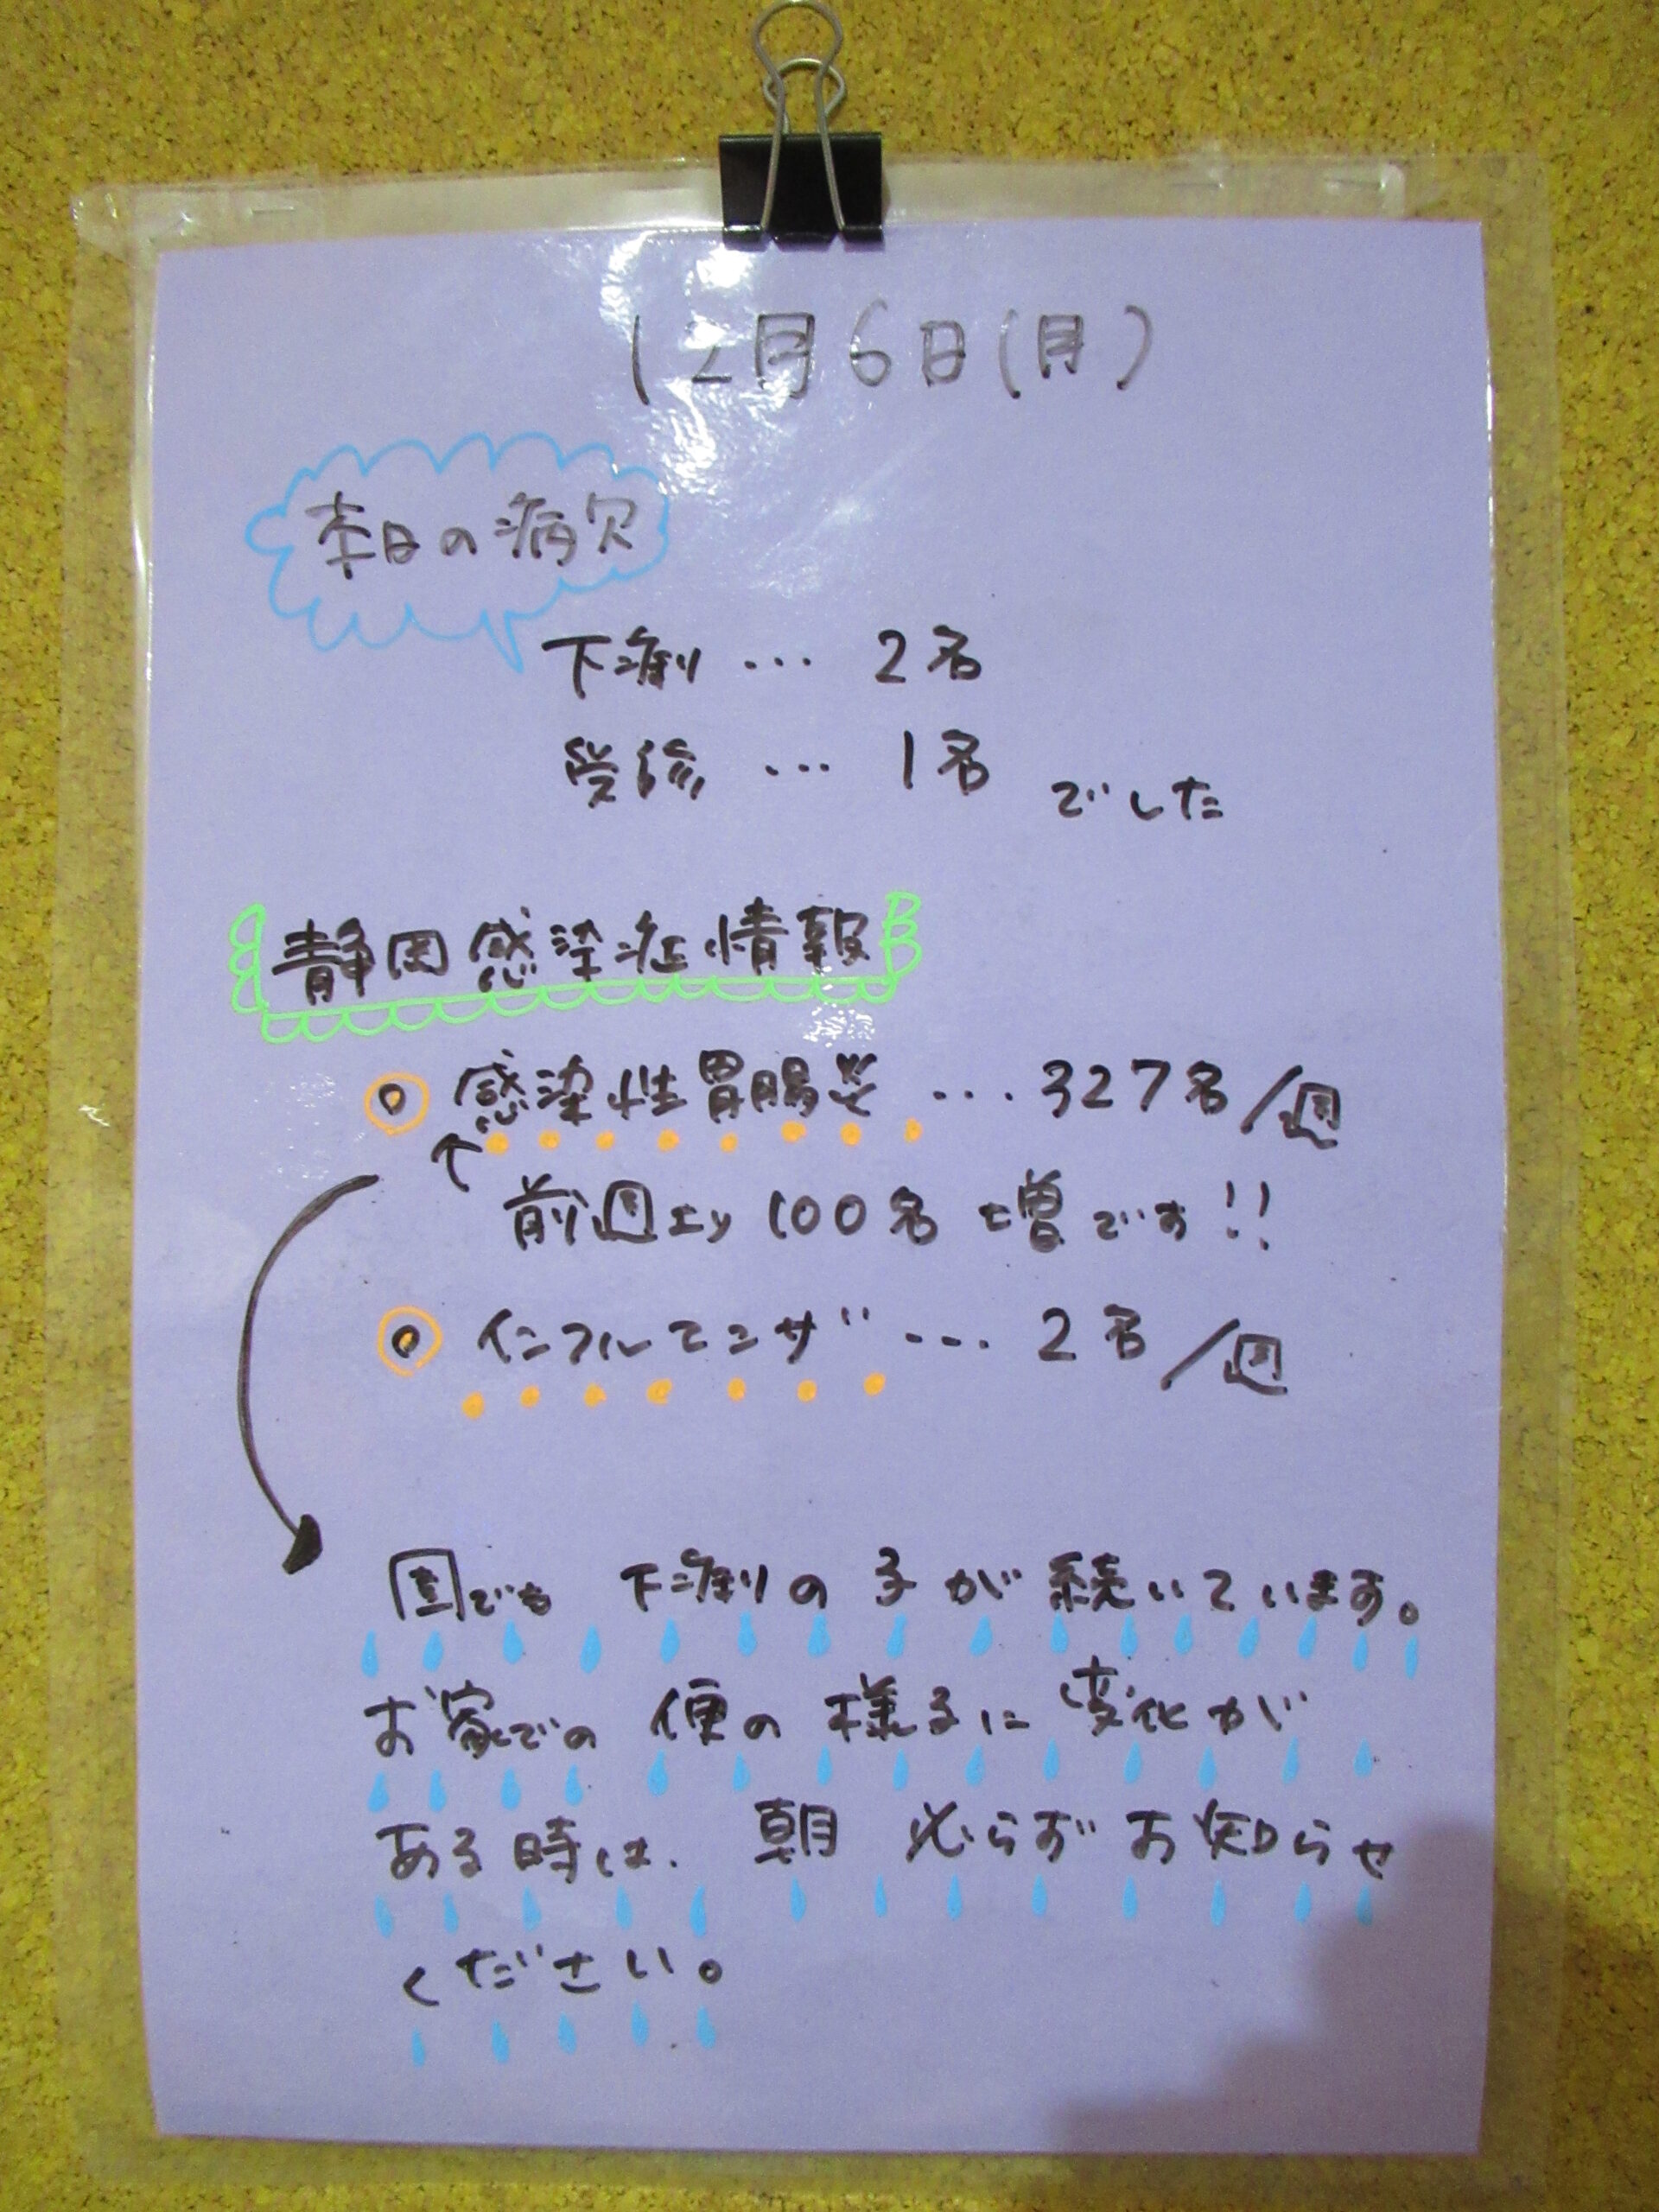 12月6日(月)
本日の病欠
下痢 … 2名
受診 … 1名 でした
静岡感染症情報
◎ 感染性胃腸炎 … 327名/週
↑ 前週より100名増です!!
◎ インフルエンザ … 2名/週
園でも 下痢の子が続いています。
お家での 便の様子に変化が
ある時は、朝 必らずお知らせ
ください。